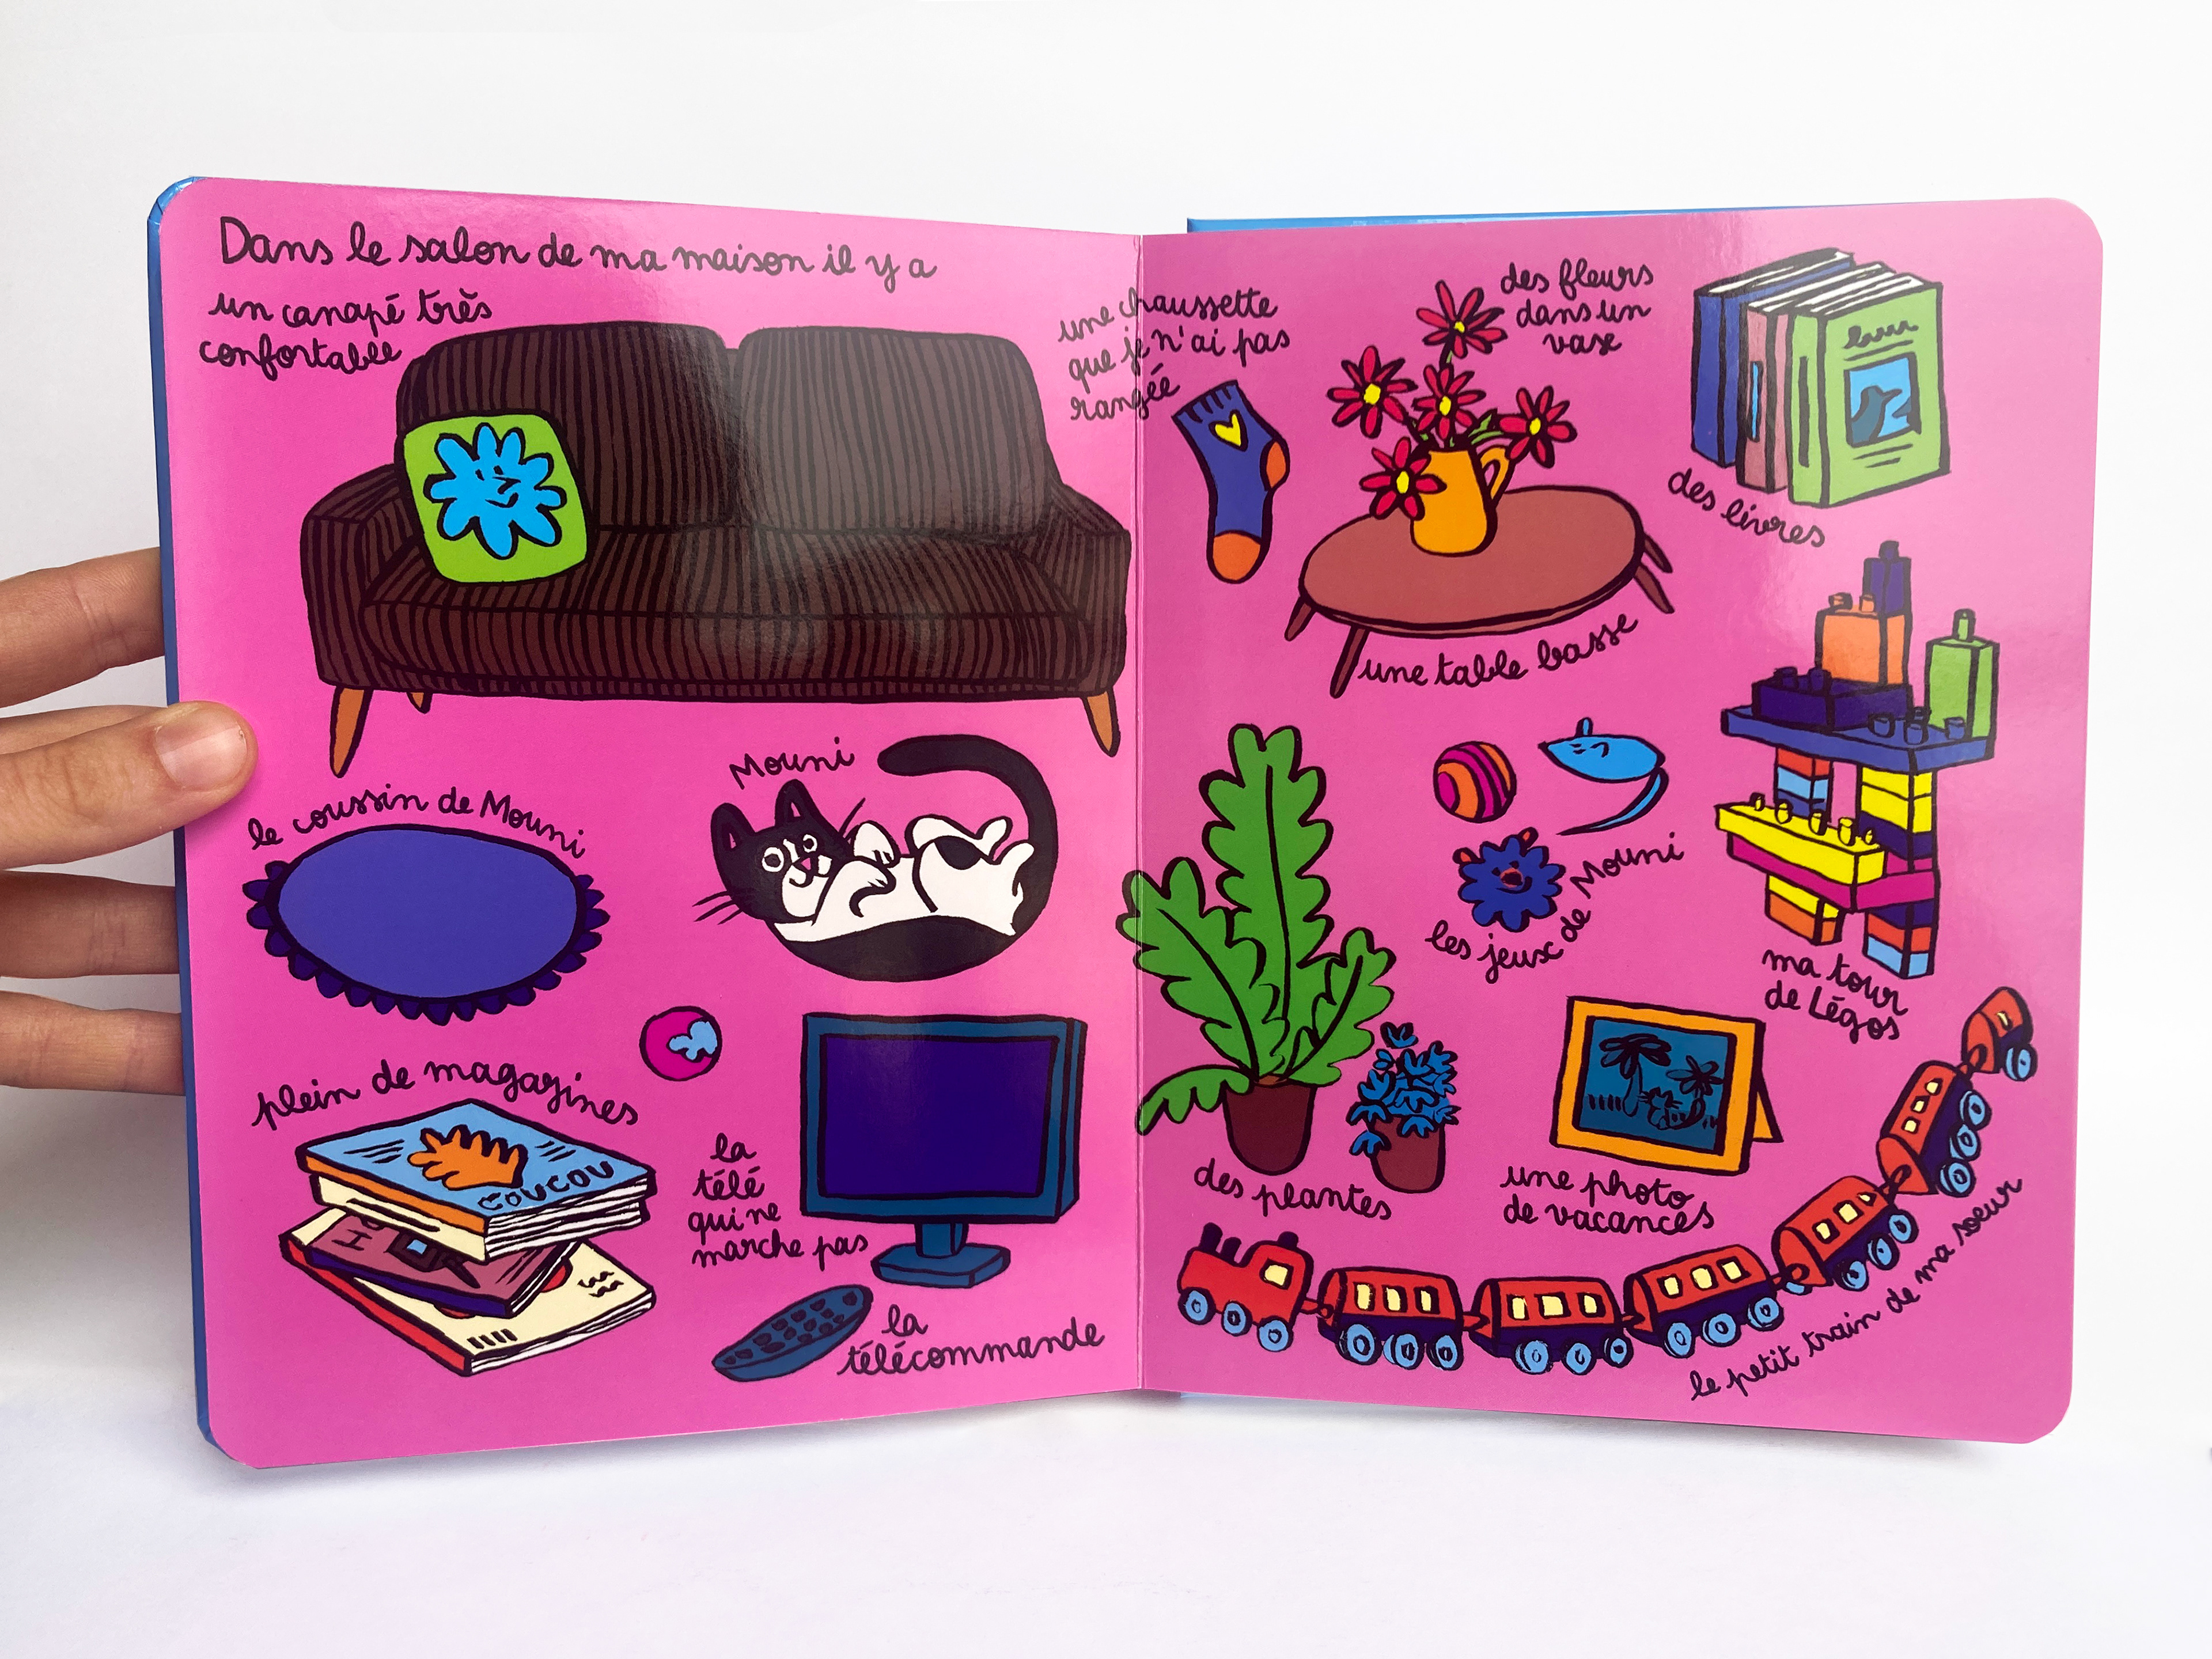 Dans le salon de ma maison il y a
un canapé très
confortable
Mouni
le coussin de Mouni
plein de magazines
COUCOU
la
télé
qui ne
marche pas
la
télécommande
une chaussette
que je n'ai pas
rangée
des fleurs
dans un
vase
des livres
une table basse
les jeux de Mouni
ma tour
de Légos
des plantes
une photo
de vacances
le petit train de ma soeur